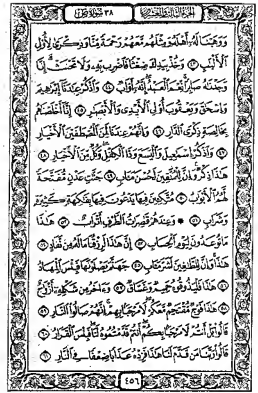 الجزء الثالث والعشرون ٣٨ سورة ص
وَوَهَبْنَا لَهُۥٓ أَهْلَهُۥ وَمِثْلَهُم مَّعَهُمْ رَحْمَةً مِّنَّا وَذِكْرَىٰ لِأُو۟لِى
ٱلْأَلْبَٰبِ ٤٣ وَخُذْ بِيَدِكَ ضِغْثًا فَٱضْرِب بِّهِۦ وَلَا تَحْنَثْ إِنَّا
وَجَدْنَٰهُ صَابِرًا نِّعْمَ ٱلْعَبْدُ إِنَّهُۥٓ أَوَّابٌ ٤٤ وَٱذْكُرْ عِبَٰدَنَآ إِبْرَٰهِيمَ
وَإِسْحَٰقَ وَيَعْقُوبَ أُو۟لِى ٱلْأَيْدِى وَٱلْأَبْصَٰرِ ٤٥ إِنَّآ أَخْلَصْنَٰهُم
بِخَالِصَةٍ ذِكْرَى ٱلدَّارِ ٤٦ وَإِنَّهُمْ عِندَنَا لَمِنَ ٱلْمُصْطَفَيْنَ ٱلْأَخْيَارِ
٤٧ وَٱذْكُرْ إِسْمَٰعِيلَ وَٱلْيَسَعَ وَذَا ٱلْكِفْلِ وَكُلٌّ مِّنَ ٱلْأَخْيَارِ ٤٨
هَٰذَا ذِكْرٌ وَإِنَّ لِلْمُتَّقِينَ لَحُسْنَ مَـَٔابٍ ٤٩ جَنَّٰتِ عَدْنٍ مُّفَتَّحَةً
لَّهُمُ ٱلْأَبْوَٰبُ ٥٠ مُتَّكِـِٔينَ فِيهَا يَدْعُونَ فِيهَا بِفَٰكِهَةٍ كَثِيرَةٍ
وَشَرَابٍ ٥١ وَعِندَهُمْ قَٰصِرَٰتُ ٱلطَّرْفِ أَتْرَابٌ ٥٢ هَٰذَا
مَا تُوعَدُونَ لِيَوْمِ ٱلْحِسَابِ ٥٣ إِنَّ هَٰذَا لَرِزْقُنَا مَا لَهُۥ مِن نَّفَادٍ ٥٤
هَٰذَا وَإِنَّ لِلطَّٰغِينَ لَشَرَّ مَـَٔابٍ ٥٥ جَهَنَّمَ يَصْلَوْنَهَا فَبِئْسَ ٱلْمِهَادُ
٥٦ هَٰذَا فَلْيَذُوقُوهُ حَمِيمٌ وَغَسَّاقٌ ٥٧ وَءَاخَرُ مِن شَكْلِهِۦٓ أَزْوَٰجٌ
٥٨ هَٰذَا فَوْجٌ مُّقْتَحِمٌ مَّعَكُمْ لَا مَرْحَبًۢا بِهِمْ إِنَّهُمْ صَالُوا۟ ٱلنَّارِ ٥٩
قَالُوا۟ بَلْ أَنتُمْ لَا مَرْحَبًۢا بِكُمْ أَنتُمْ قَدَّمْتُمُوهُ لَنَا فَبِئْسَ ٱلْقَرَارُ ٦٠
قَالُوا۟ رَبَّنَا مَن قَدَّمَ لَنَا هَٰذَا فَزِدْهُ عَذَابًا ضِعْفًا فِى ٱلنَّارِ ٦١
٤٥٦